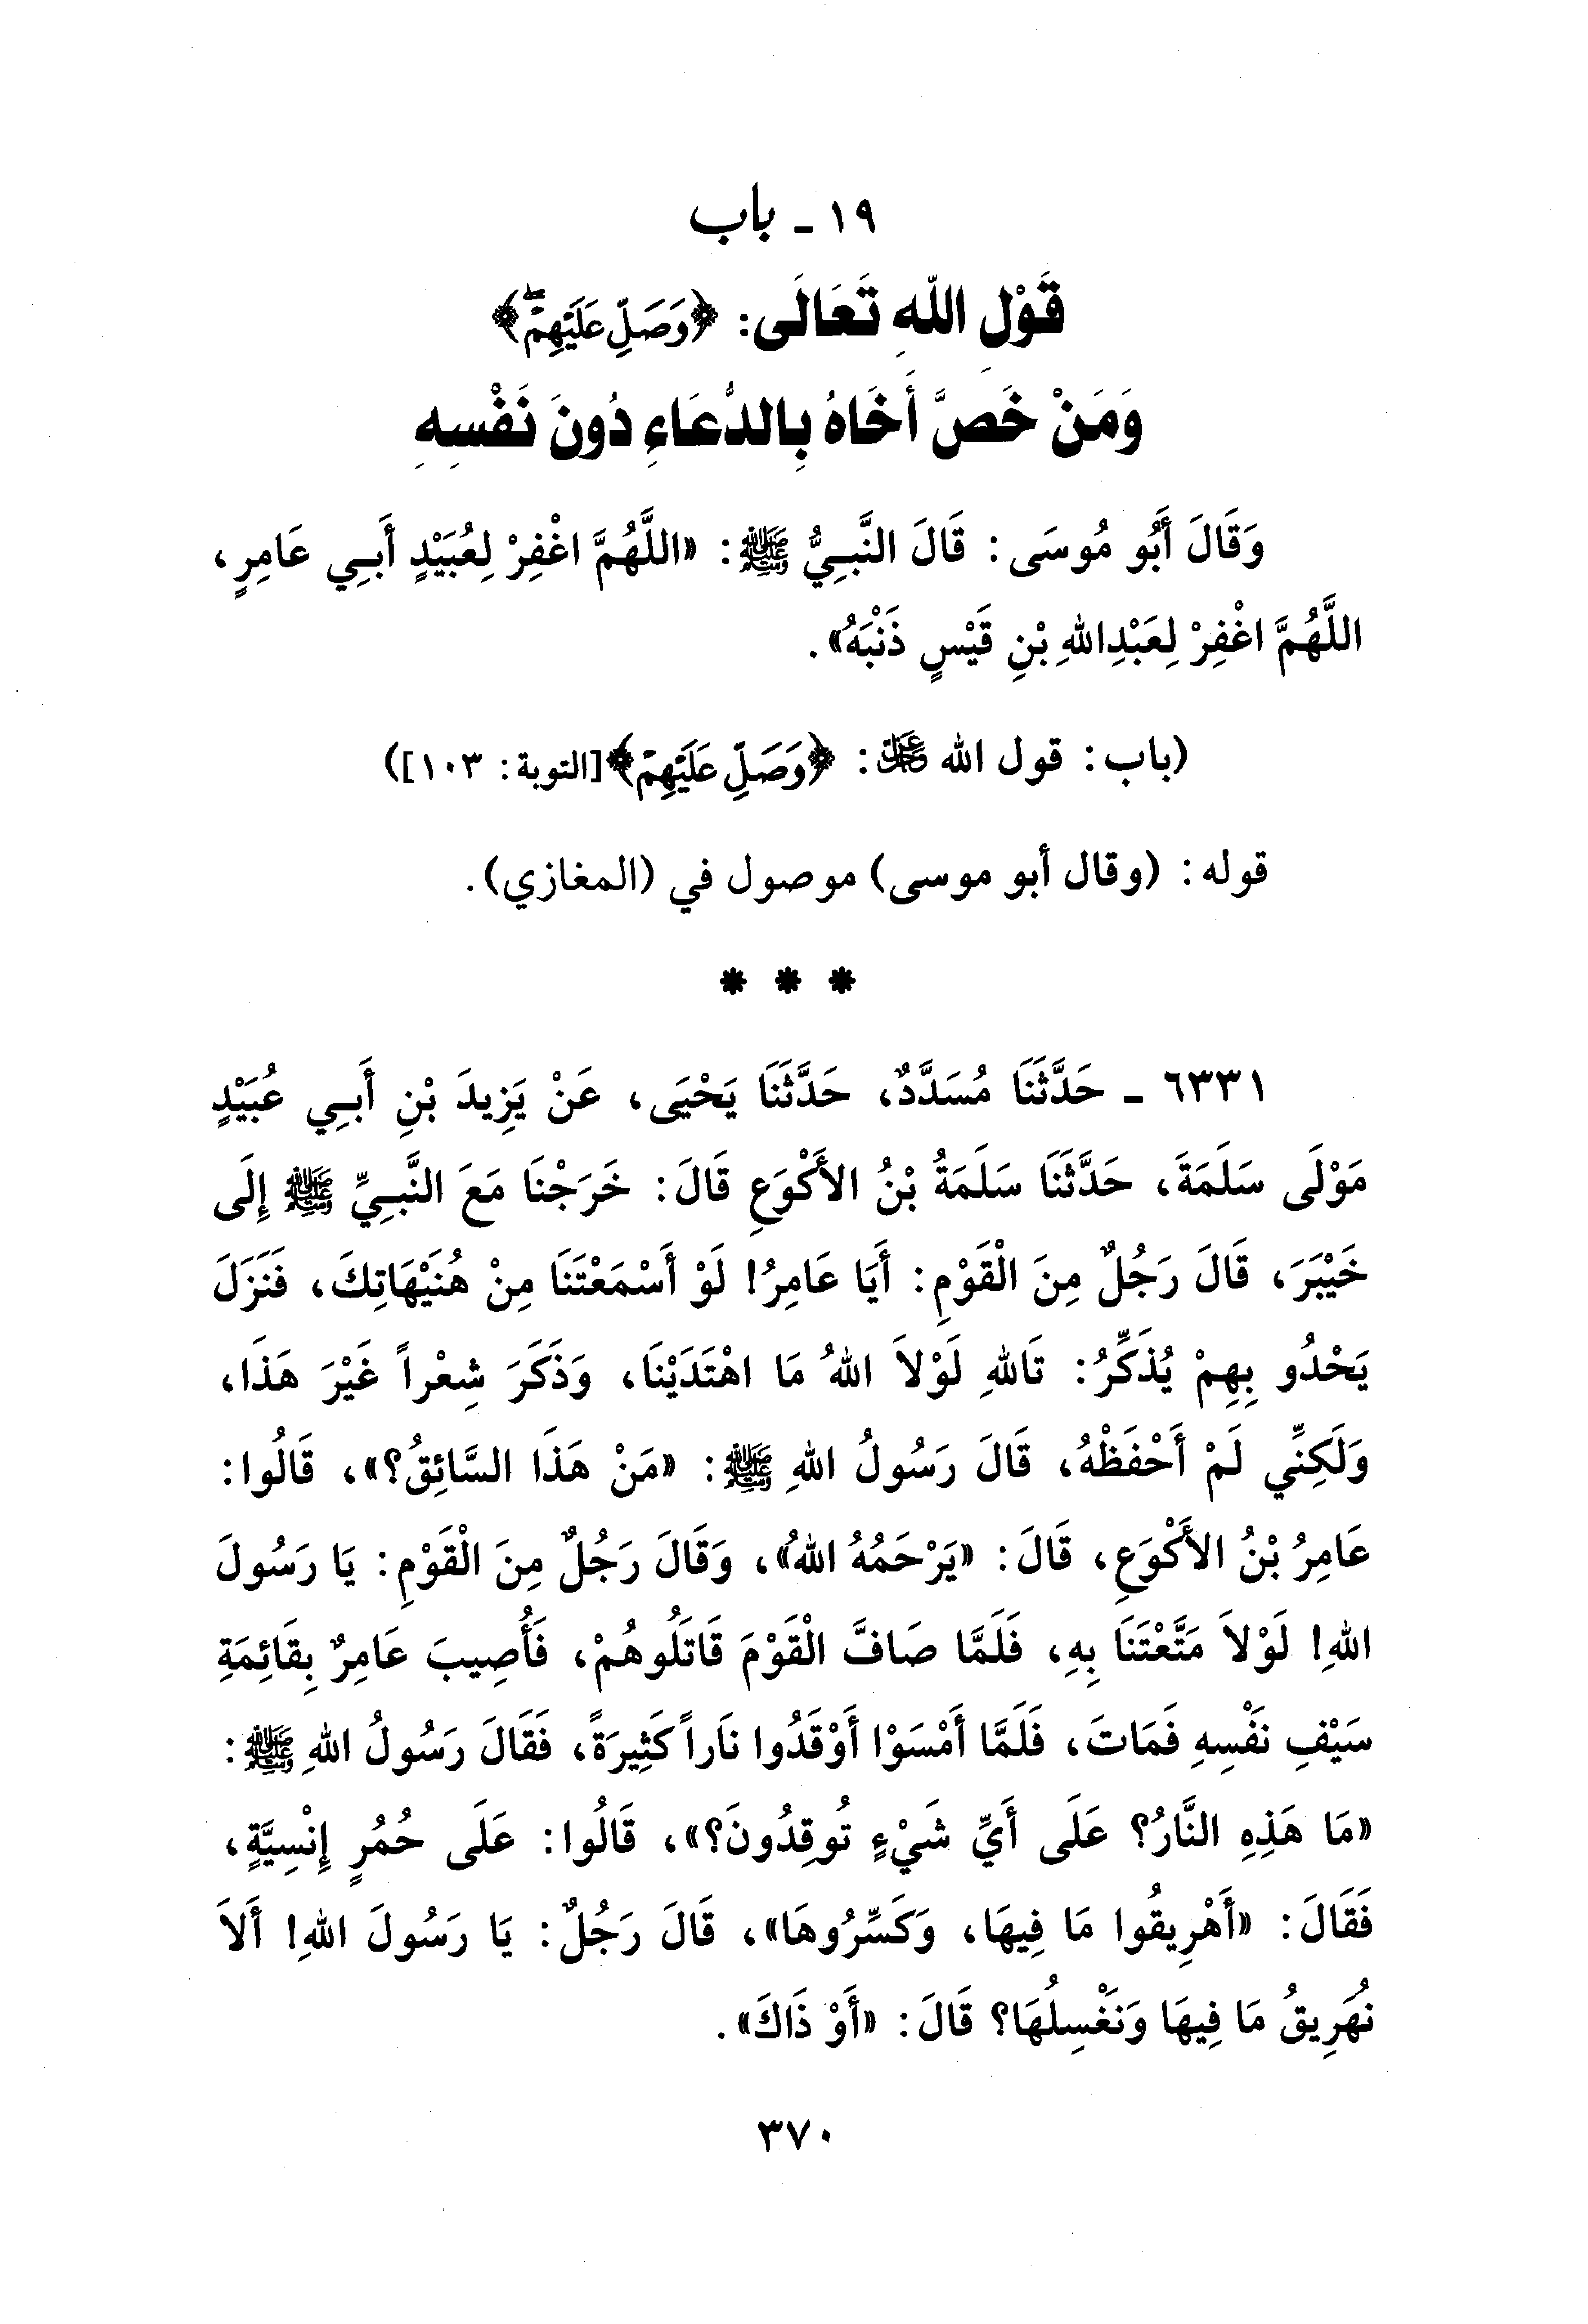 ١٩ ـ باب
قَوْلِ اللهِ تَعَالَى: ﴿وَصَلِّ عَلَيْهِمْ﴾
وَمَنْ خَصَّ أَخَاهُ بِالدُّعَاءِ دُونَ نَفْسِهِ
وَقَالَ أَبُو مُوسَى: قَالَ النَّبِيُّ ﷺ: «اللَّهُمَّ اغْفِرْ لِعُبَيْدٍ أَبِي عَامِرٍ،
اللَّهُمَّ اغْفِرْ لِعَبْدِاللهِ بْنِ قَيْسٍ ذَنْبَهُ».
(باب: قول الله عز وجل: ﴿وَصَلِّ عَلَيْهِمْ﴾[التوبة: ١٠٣])
قوله: (وقال أبو موسى) موصول في (المغازي).
* * *
٦٣٣١ ـ حَدَّثَنَا مُسَدَّدٌ، حَدَّثَنَا يَحْيَى، عَنْ يَزِيدَ بْنِ أَبِي عُبَيْدٍ
مَوْلَى سَلَمَةَ، حَدَّثَنَا سَلَمَةُ بْنُ الأَكْوَعِ قَالَ: خَرَجْنَا مَعَ النَّبِيِّ ﷺ إِلَى
خَيْبَرَ، قَالَ رَجُلٌ مِنَ الْقَوْمِ: أَيَا عَامِرُ! لَوْ أَسْمَعْتَنَا مِنْ هُنَيْهَاتِكَ، فَنَزَلَ
يَحْدُو بِهِمْ يُذَكِّرُ: تَاللهِ لَوْلاَ اللهُ مَا اهْتَدَيْنَا، وَذَكَرَ شِعْراً غَيْرَ هَذَا،
وَلَكِنِّي لَمْ أَحْفَظْهُ، قَالَ رَسُولُ اللهِ ﷺ: «مَنْ هَذَا السَّائِقُ؟»، قَالُوا:
عَامِرُ بْنُ الأَكْوَعِ، قَالَ: «يَرْحَمُهُ اللهُ»، وَقَالَ رَجُلٌ مِنَ الْقَوْمِ: يَا رَسُولَ
اللهِ! لَوْلاَ مَتَّعْتَنَا بِهِ، فَلَمَّا صَافَّ الْقَوْمَ قَاتَلُوهُمْ، فَأُصِيبَ عَامِرٌ بِقَائِمَةِ
سَيْفِ نَفْسِهِ فَمَاتَ، فَلَمَّا أَمْسَوْا أَوْقَدُوا نَاراً كَثِيرَةً، فَقَالَ رَسُولُ اللهِ ﷺ:
«مَا هَذِهِ النَّارُ؟ عَلَى أَيِّ شَيْءٍ تُوقِدُونَ؟»، قَالُوا: عَلَى حُمُرٍ إِنْسِيَّةٍ،
فَقَالَ: «أَهْرِيقُوا مَا فِيهَا، وَكَسِّرُوهَا»، قَالَ رَجُلٌ: يَا رَسُولَ اللهِ! أَلاَ
نُهَرِيقُ مَا فِيهَا وَنَغْسِلُهَا؟ قَالَ: «أَوْ ذَاكَ».
٣٧٠